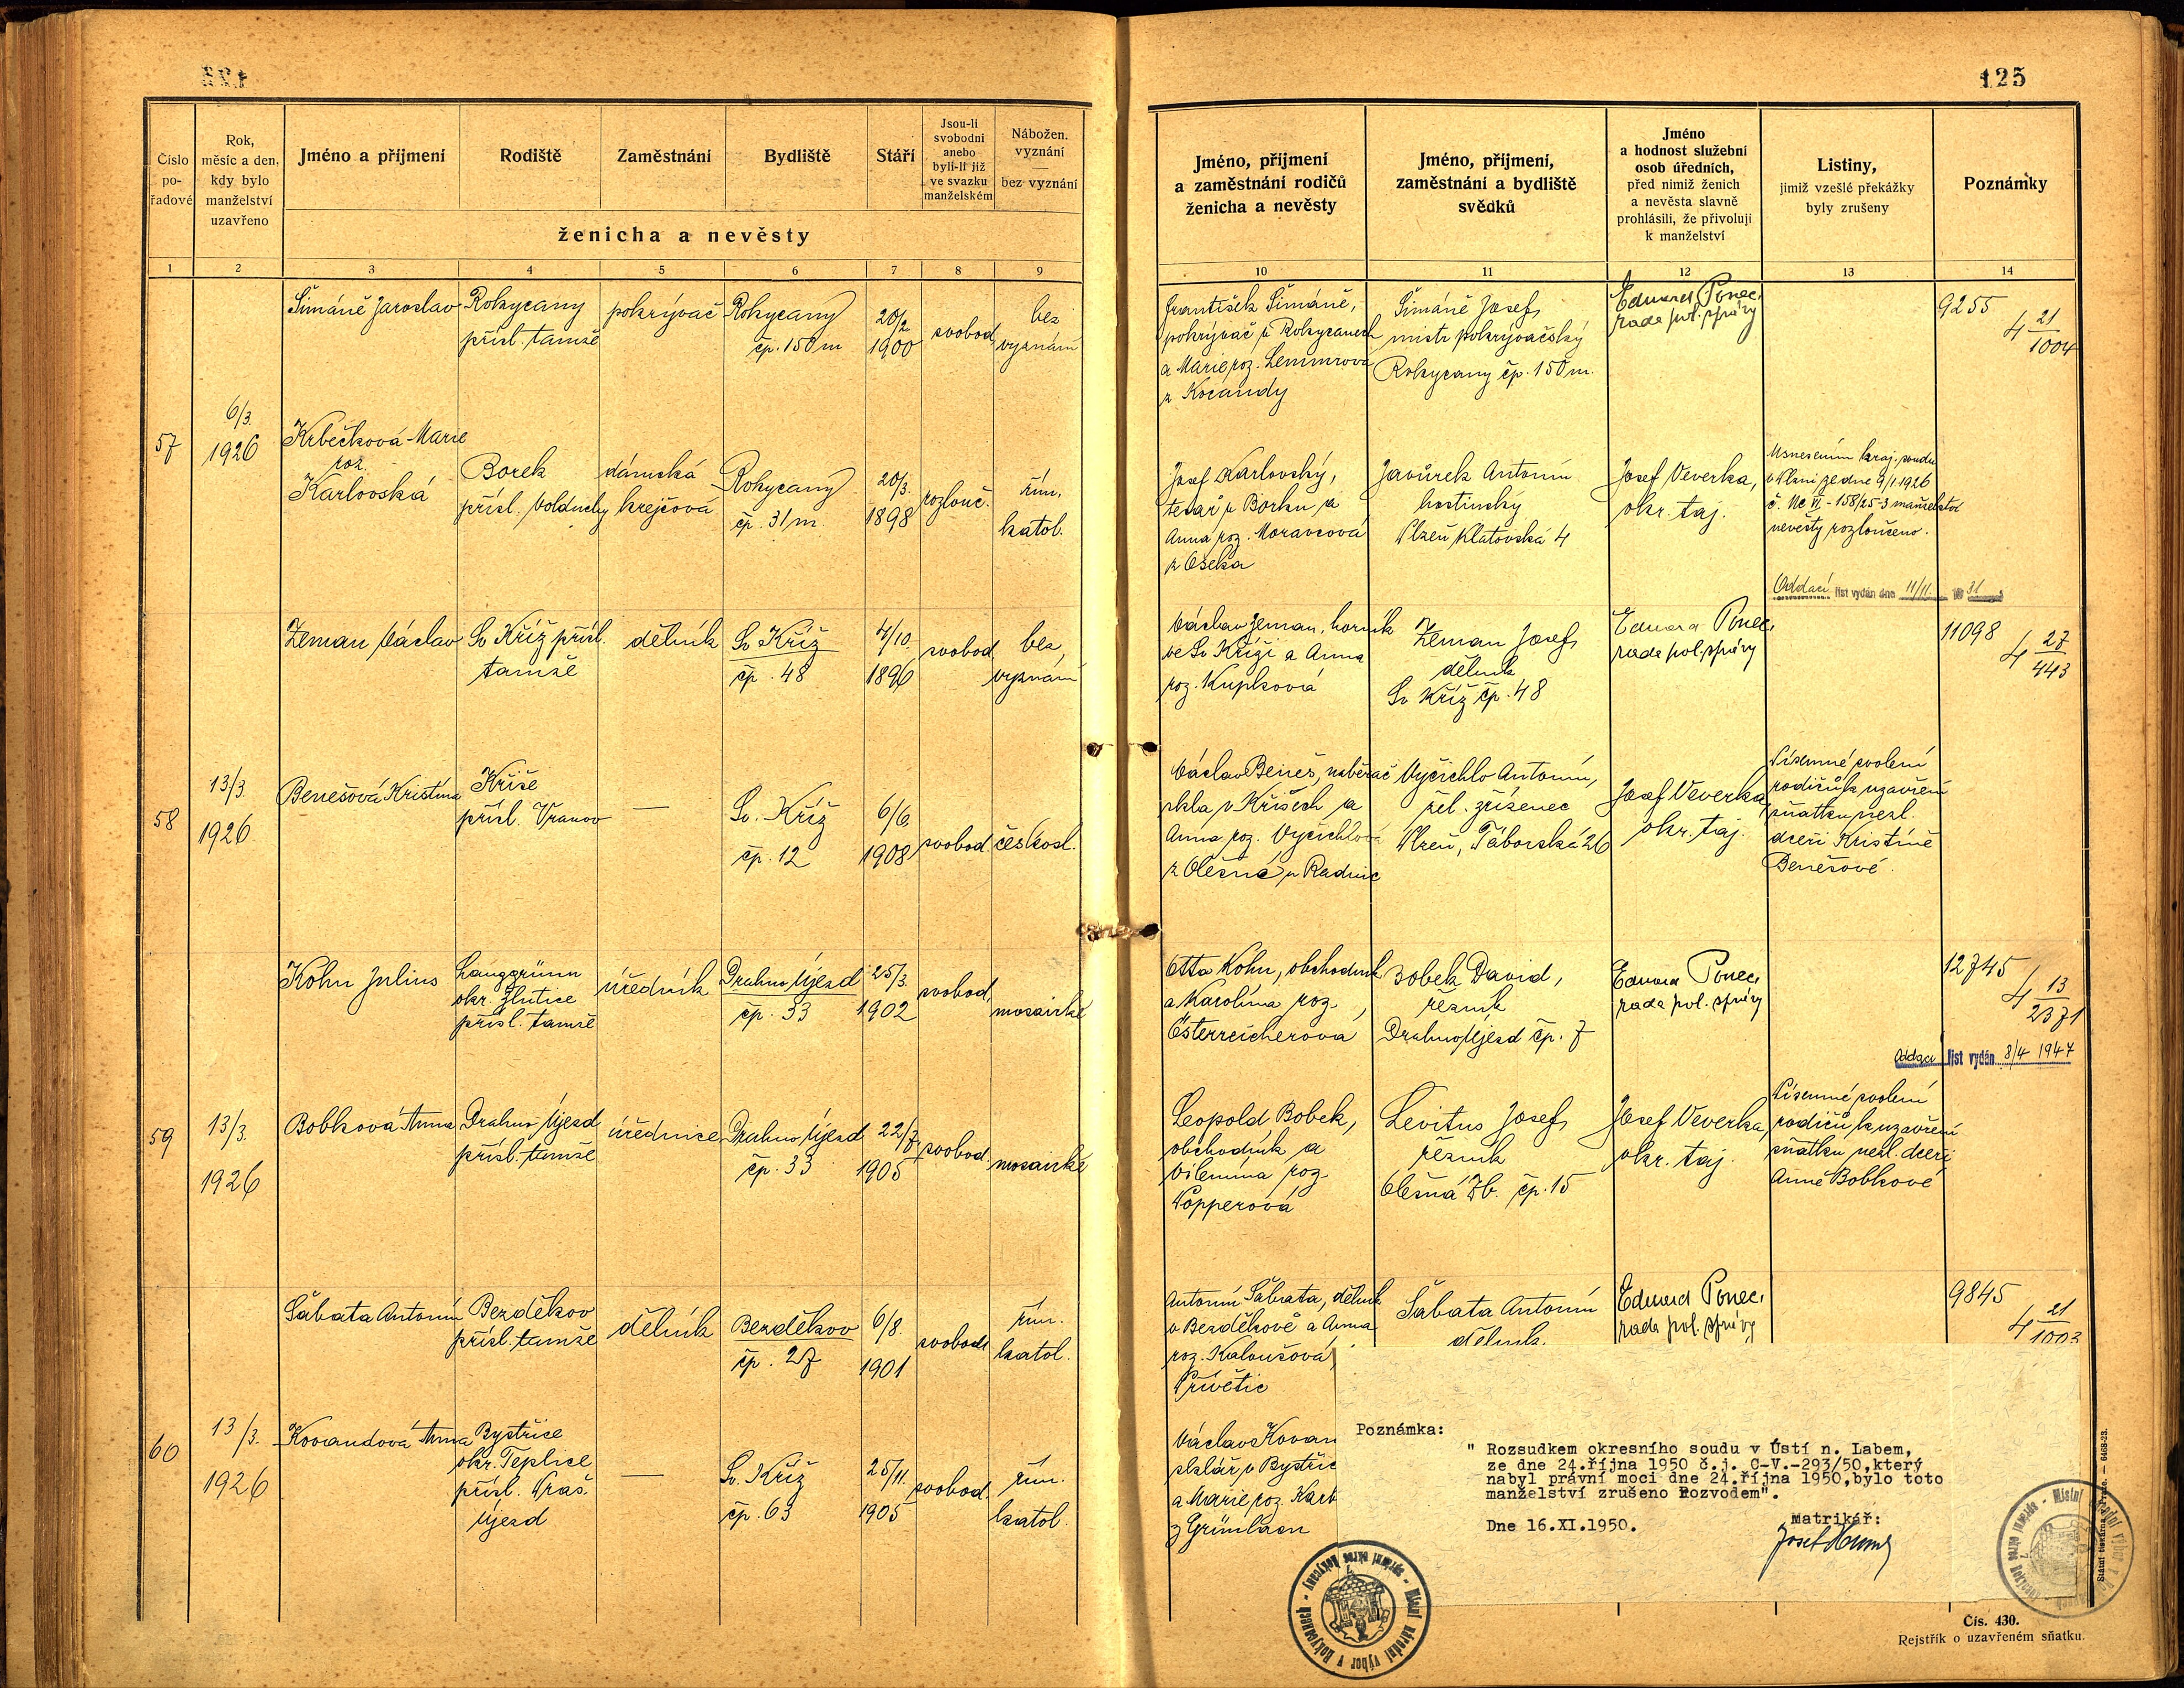 125
Číslo po-řadové
Rok, měsíc a den, kdy bylo manželství uzavřeno
Jméno a příjmení
Rodiště
Zaměstnání
Bydliště
Stáří
Jsou-li svobodni anebo byli-li již ve svazku manželském
Nábožen. vyznání — bez vyznání
ženicha a nevěsty
Jméno, příjmení a zaměstnání rodičů ženicha a nevěsty
Jméno, příjmení, zaměstnání a bydliště svědků
Jméno a hodnost služební osob úředních, před nimiž ženich a nevěsta slavně prohlásili, že přivolují k manželství
Listiny, jimiž vzešlé překážky byly zrušeny
Poznámky
1 2 3 4 5 6 7 8 9 10 11 12 13 14
Šimáně Jaroslav
Rokycany
přísl. tamže
pokrývač
Rokycany
čp. 150 m
20/2
1900
svobod.
bez
vyznání
František Šimáně,
pokrývač v Rokycanech
a Marie roz. Lemmrova
z Kocandy
Šimáně Josef
mistr pokrývačský
Rokycany čp. 150 m.
Eduard Ponec,
rada pol. správy
9255
4 21/1004
57
6/3.
1926
Krbečková Marie
roz.
Karlovská
Borek
přísl. Volduchy
dámská
krejčová
Rokycany
čp. 31/m
20/3.
1898
rozlouč.
řím.
katol.
Josef Karlovský,
tesař v Borku a
Anna roz. Moravcová
z Oseka
Javůrek Antonín
hostinský
Plzeň Klatovská 4
Josef Veverka,
okr. taj.
Usnesením kraj. soudu
v Plzni ze dne 9/1 1926
č. Nc VI - 158/25-3 manželství
nevěsty rozloučeno.
Oddací list vydán dne 11/11 31
Zeman Václav
Sv Kříž přísl.
tamže
dělník
Sv Kříž
čp. 48
4/10.
1896
svobod.
bez
vyznání
Václav Zeman, horník
ve Sv Kříži a Anna
roz. Kupková
Zeman Josef
dělník
Sv Kříž čp. 48
Eduard Ponec,
rada pol. správy
11098
4 27/443
58
13/3.
1926
Benešová Kristina
Kříše
přísl. Vranov
—
Sv. Kříž
čp. 12
6/6.
1908
svobod.
českosl.
Václav Beneš, naběrač
skla v Kříšech a
Anna roz. Vyčichlová
z Olešné u Radnic
Vyčichlo Antonín,
žel. zřízenec
Plzeň, Táborská 26
Josef Veverka
okr. taj.
Písemné svolení
rodičů k uzavření
sňatku nezl.
dceři Kristině
Benešové.
Kohn Julius
Langgrünn
okr. Žlutice
přísl. tamže
úředník
Drahno Újezd
čp. 33
25/3.
1902
svobod.
mosaické
Otto Kohn, obchodník
a Karolina roz.
Österreicherova
Bobek David,
řezník
Drahno Újezd čp. 7
Eduard Ponec,
rada pol. správy
12745
4 13/2371
Oddací list vydán 8/4 1947
59
13/3.
1926
Bobková Anna
Drahno-Újezd
přísl. tamže
úřednice
Drahno Újezd
čp. 33
22/7.
1905
svobod.
mosaické
Leopold Bobek,
obchodník a
Vilemína roz.
Popperová
Levitus Josef
řezník
Olešná Zb. čp. 15
Josef Veverka,
okr. taj.
Písemné svolení
rodičů k uzavření
sňatku nezl. dceři
Anně Bobkové
Šabata Antonín
Bezděkov
přísl. tamže
dělník
Bezděkov
čp. 27
6/8.
1901
svobod.
řím.
katol.
Antonín Šabata, dělník
v Bezděkově a Anna
roz. Kaloušová
Přívětic
Šabata Antonín
dělník.
Eduard Ponec,
rada pol. správy
9845
4 21/1003
60
13/3.
1926
Kovandová Anna
Bystřice
okr. Teplice
přísl. Praš.
Újezd
—
Sv. Kříž
čp. 63
25/11.
1905
svobod.
řím.
katol.
Václav Kovan
sklář v Bystřic
a Marie roz. Kart
Poznámka:
" Rozsudkem okresního soudu v Ústí n. Labem,
ze dne 24.října 1950 č.j. C-V.-293/50,který
nabyl právní moci dne 24.října 1950,bylo toto
manželství zrušeno Rozvodem".
Dne 16.XI.1950.
Matrikář:
Místní národní výbor v Rokycanech - správní okres Rokycany -
Čís. 430.
Rejstřík o uzavřeném sňatku.